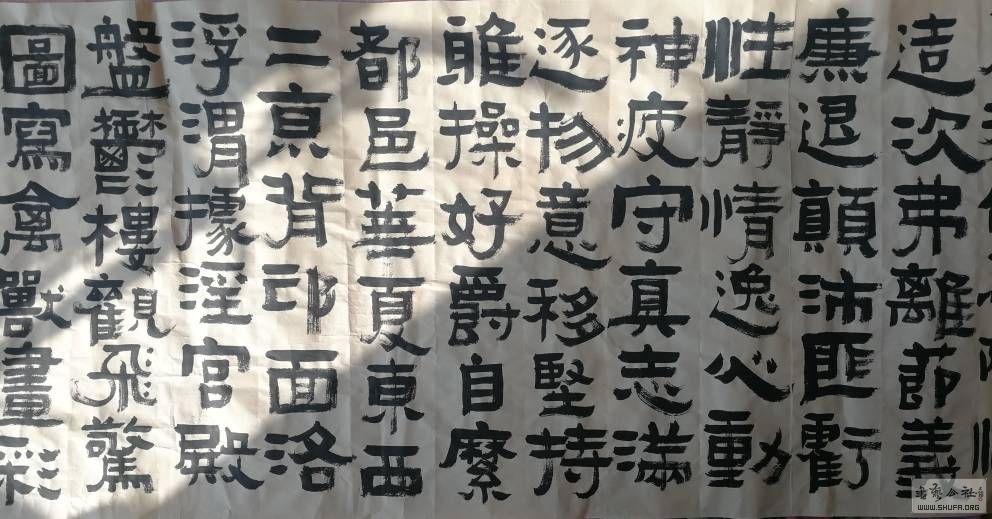 造次弗離節義
廉退顛沛匪虧
性靜情逸心動
神疲守真志滿
逐物意移堅持
雅操好爵自縻
都邑華夏東西
二京背邙面洛
浮渭據涇宮殿
盤鬱樓觀飛驚
圖寫禽獸畫彩
书艺公社
WWW.SHUFA.ORG